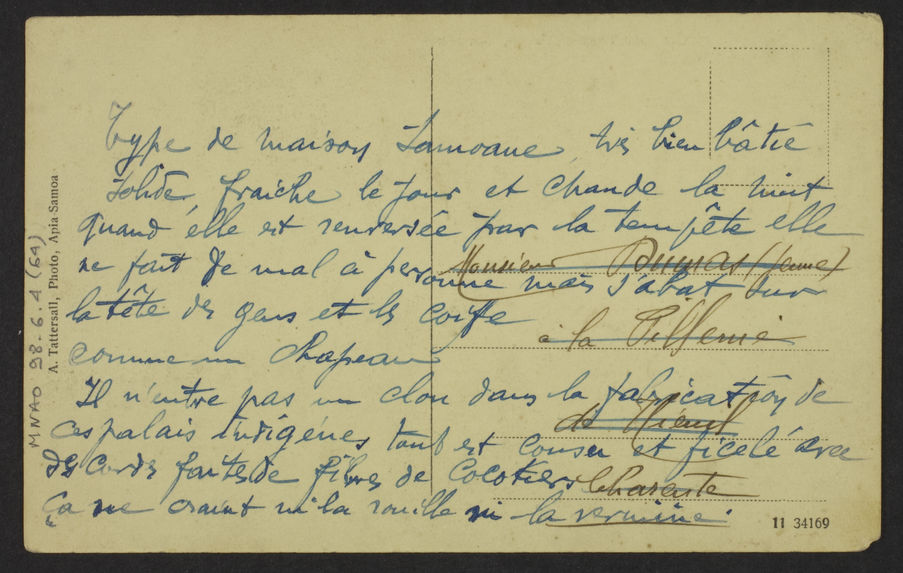 Type de maison Samoane, très bien bâtie
solide, fraîche le jour et chaude la nuit
Quand elle est renversée par la tempête elle
ne fait de mal à personne mais s'abat sur
la tête des gens et les coiffe
comme un chapeau
Il n'entre pas un clou dans la fabrication de
ces palais indigènes, tout est cousu et ficelé avec
des cordes faites de fibres de Cocotiers
Ça ne craint ni la rouille ni la vermine.
Monsieur Dumas (jeune)
à la
de
Charente
A. Tattersall, Photo, Apia Samoa
MNAO 98.6.4 (64)
11 34169